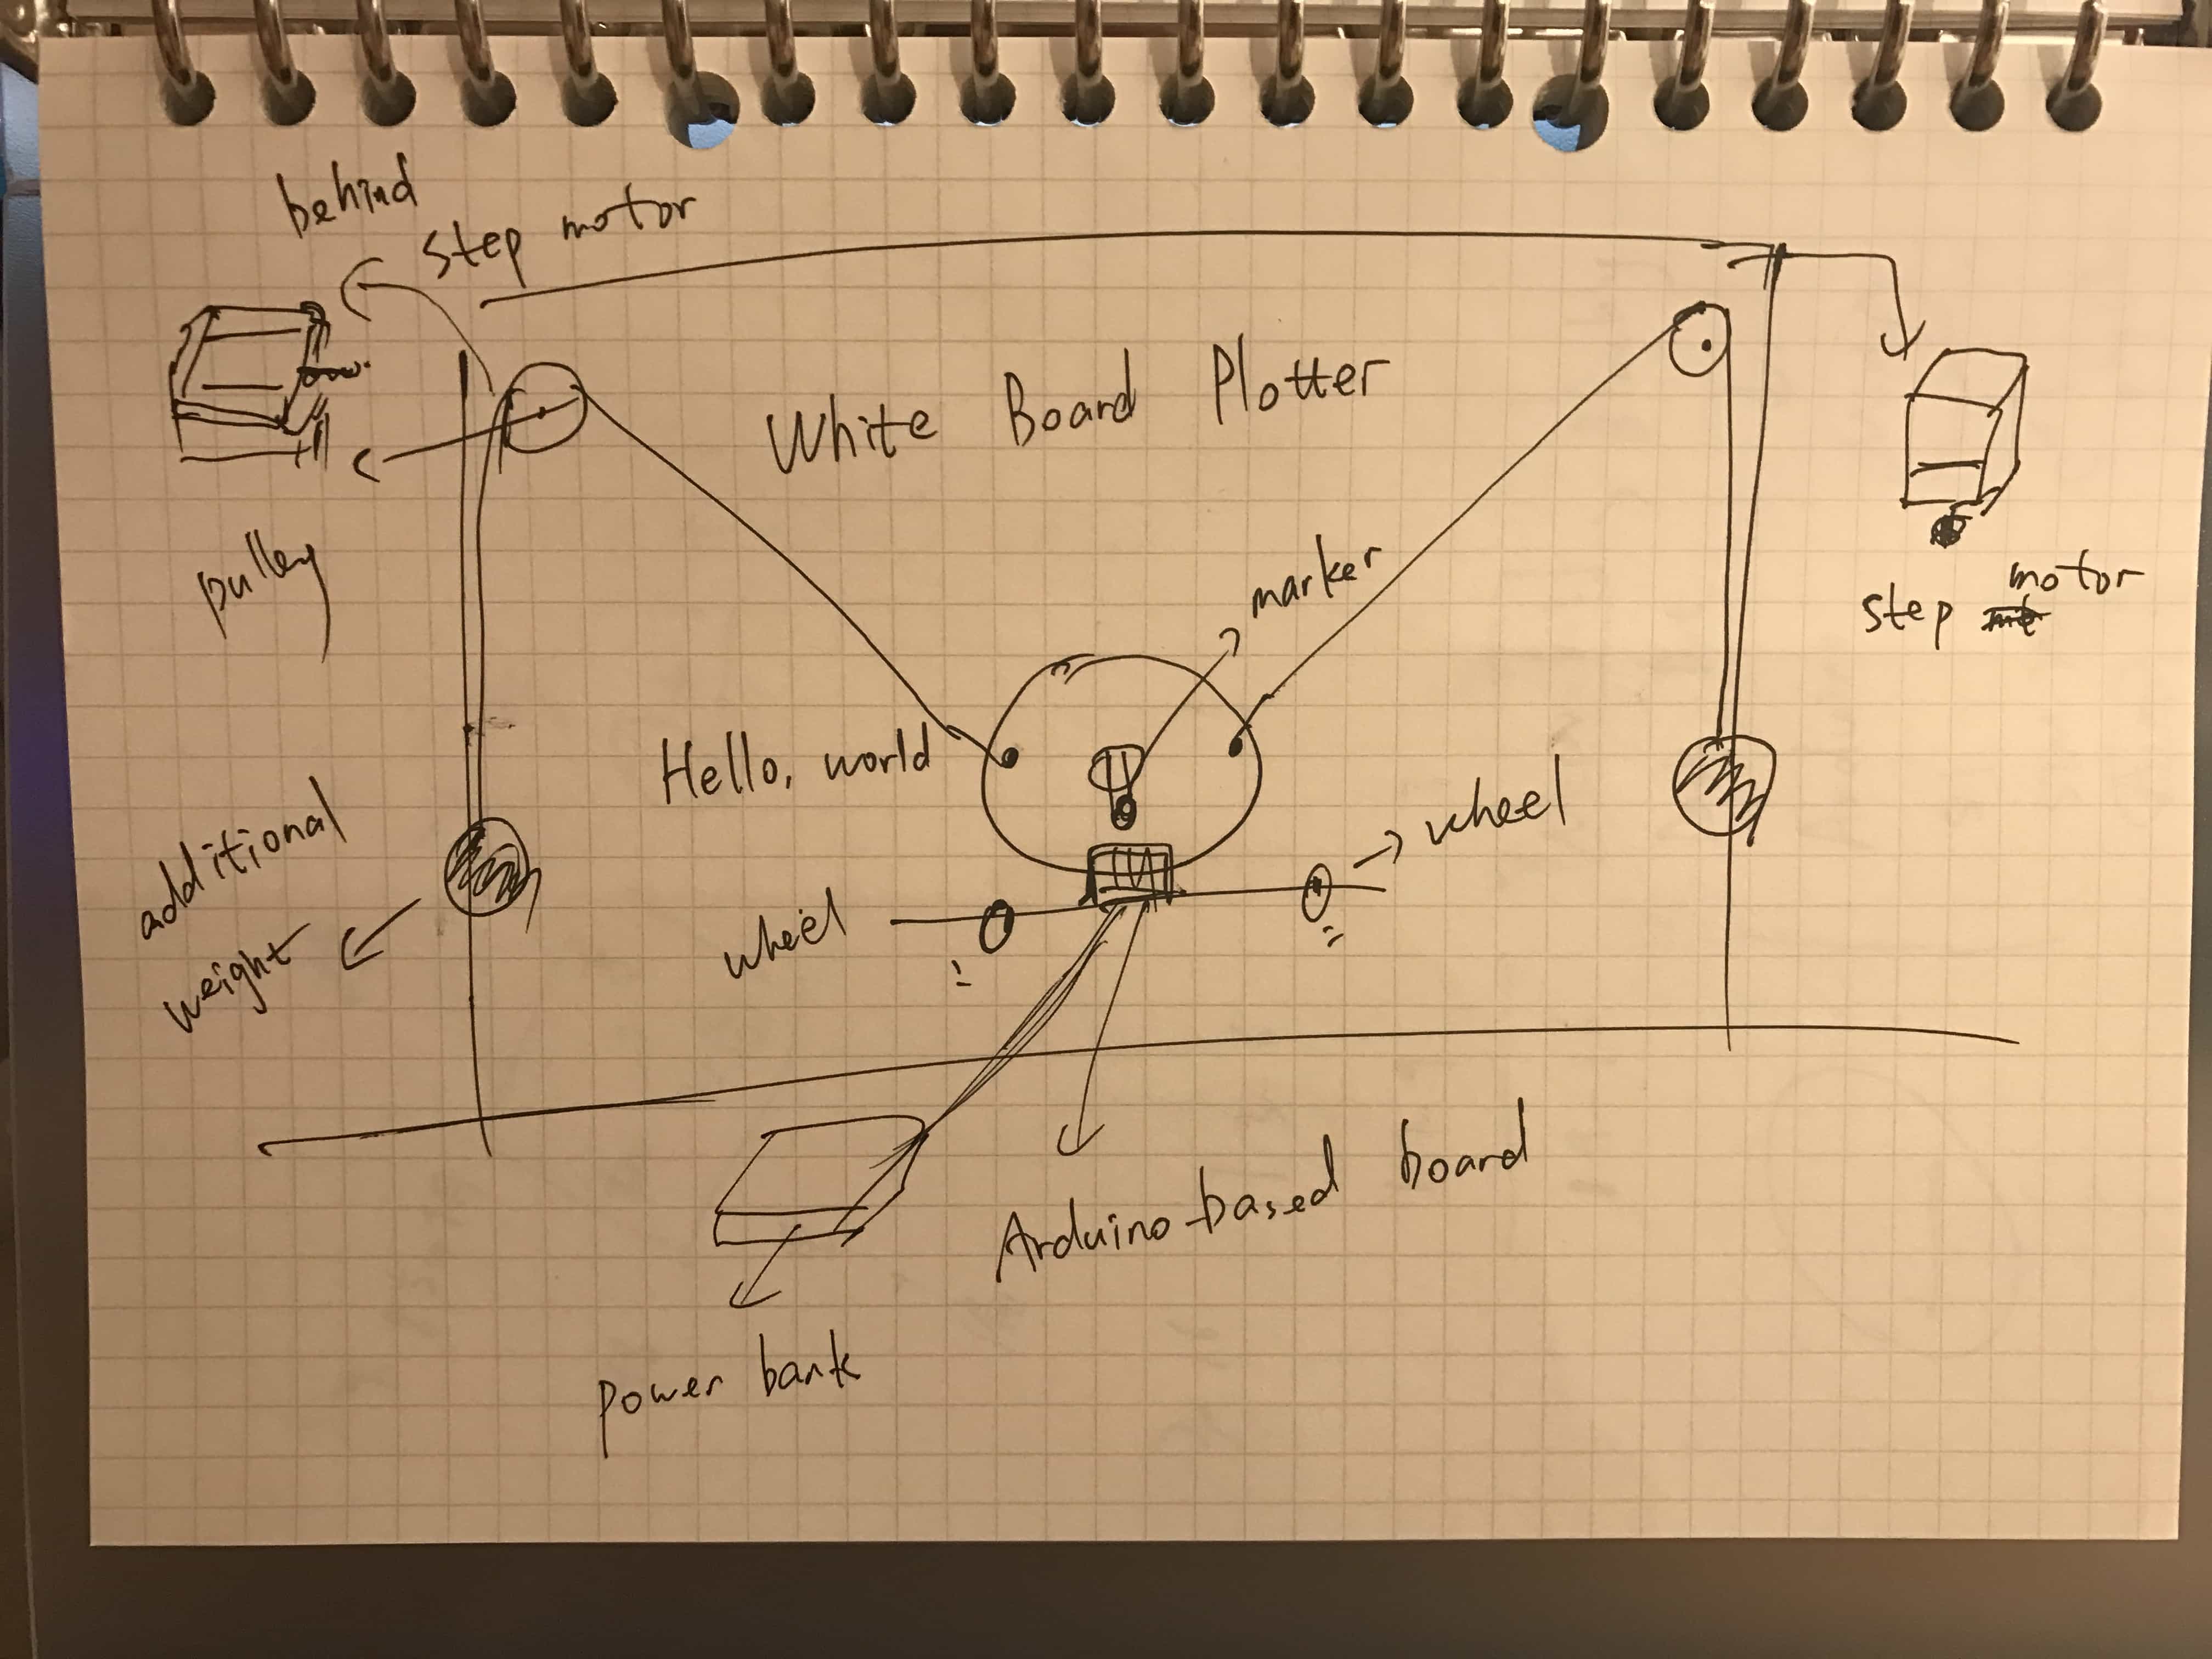 behind
step motor
White Board Plotter
pulley
marker
step motor
Hello, world
wheel
additional
weight
wheel
Arduino-based board
power bank